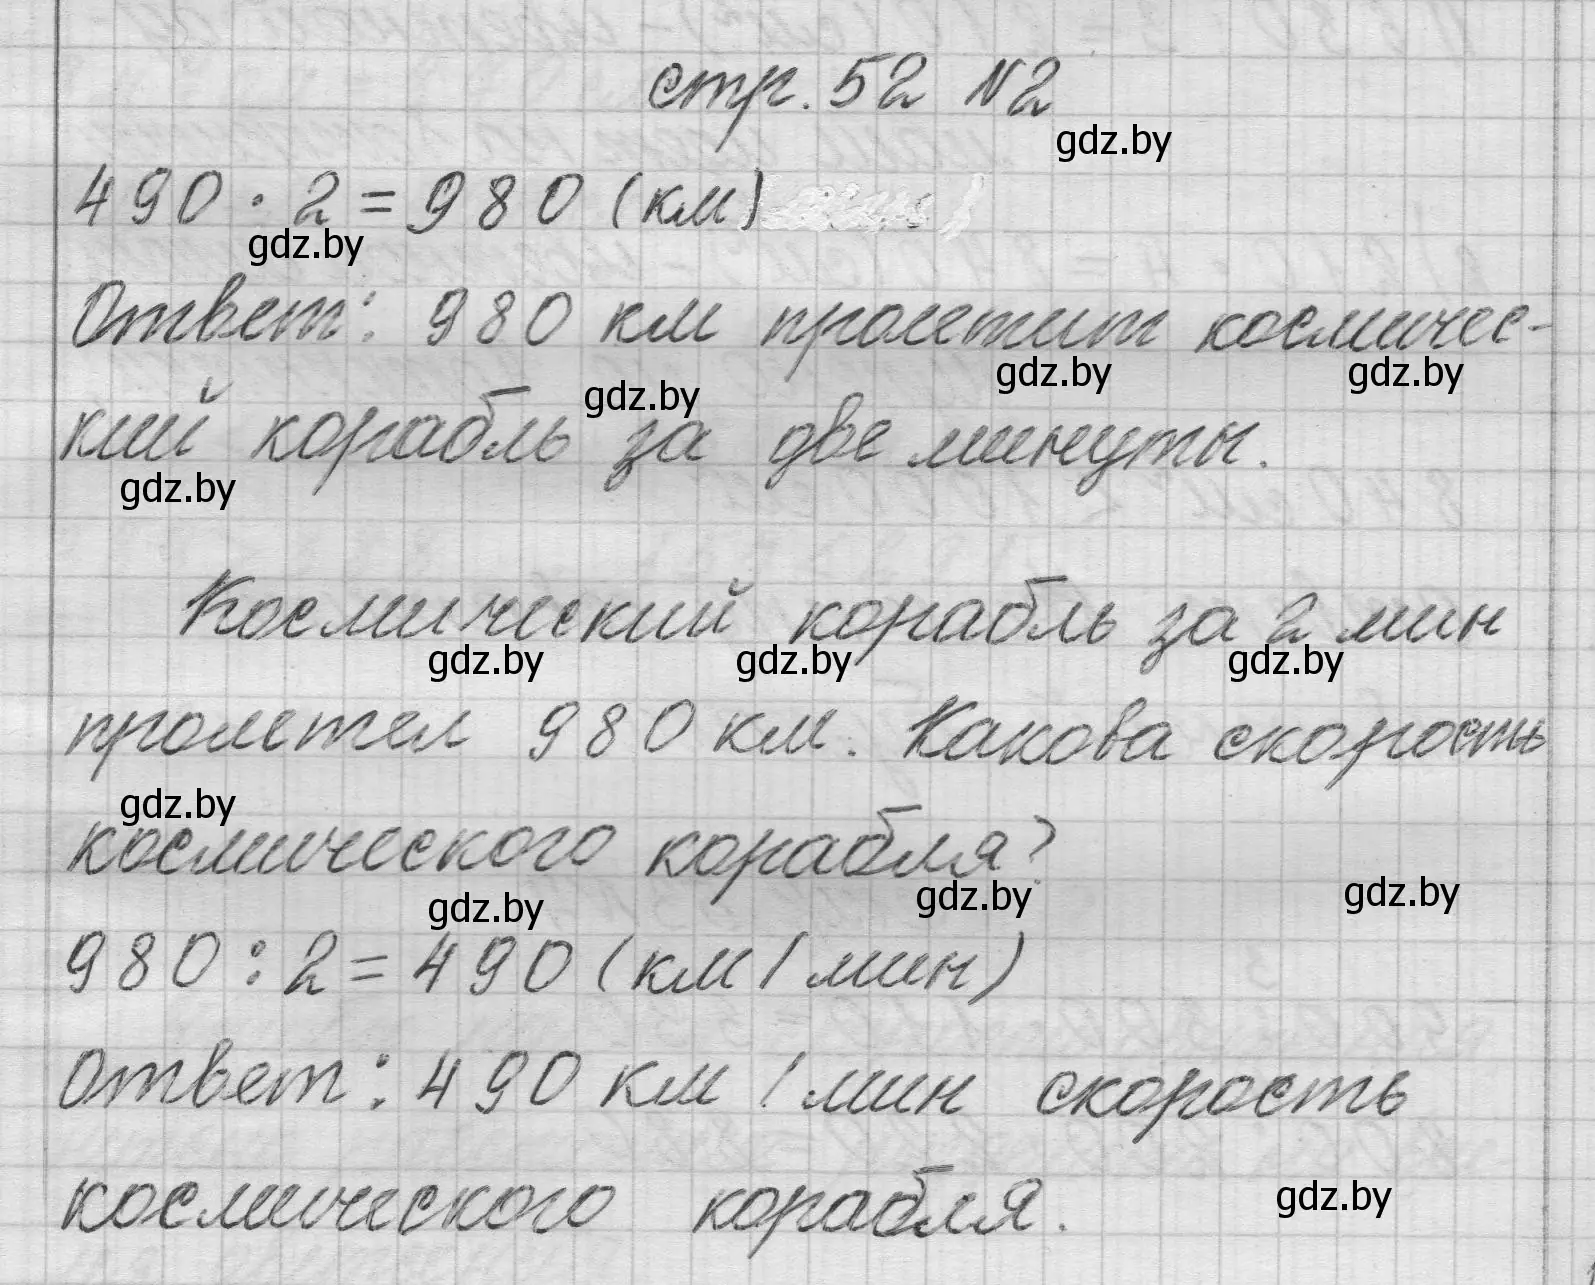 стр. 52 №2
gdz.by
490 · 2 = 980 (км)
gdz.by
Ответ: 980 км пролетит космичес-
gdz.by gdz.by gdz.by
кий корабль за две минуты.
gdz.by
Космический корабль за 2 мин
gdz.by gdz.by gdz.by
пролетел 980 км. Какова скорость
gdz.by
космического корабля?
gdz.by gdz.by gdz.by
980 : 2 = 490 (км/мин)
Ответ: 490 км/мин скорость
космического корабля.
gdz.by